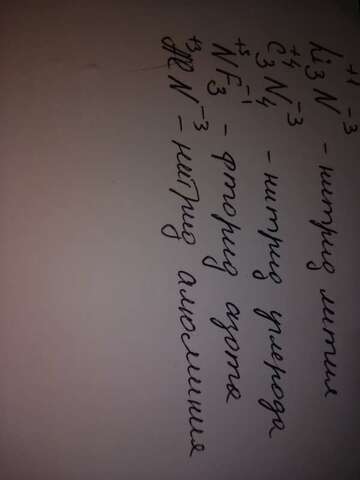 Li₃⁺¹N⁻³ - нитрид лития
C₃⁺⁴N₄⁻³ - нитрид углерода
N⁺⁵F₃⁻¹ - фторид азота
Al⁺³N⁻³ - нитрид алюминия